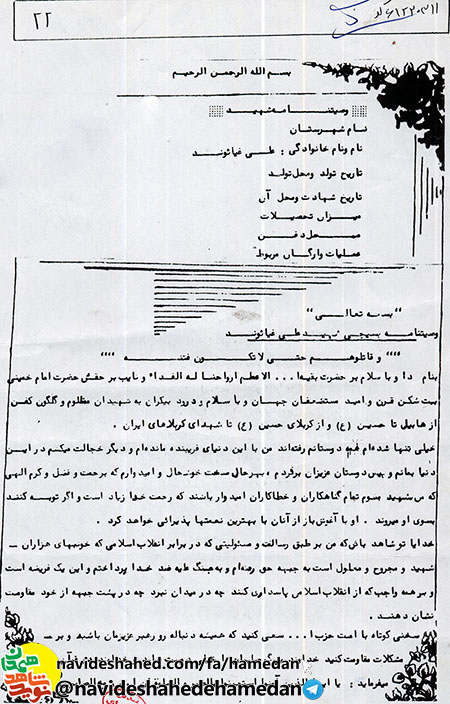 ۲۲
بسم الله الرحمن الرحیم
وصیتنامه شهید
نام شهرستان
نام ونام خانوادگی : علی غیاثوند
تاریخ تولد ومحل تولد
تاریخ شهادت ومحل آن
میزان تحصیلات
محل دفن
عملیات وارگان مربوط
"بسمه تعالی"
وصیتنامه بسیجی شهید علی غیاثوند
"" و قاتلوهم حتی لا تکون فتنه ""
بنام خدا و با سلام بر حضرت بقیه ا... الاعظم ارواحنا له الفداء و نایب بر حقش حضرت امام خمینی
بت شکن قرن و امید مستضعفان جهان و با سلام و درود بیکران به شهیدان مظلوم و گلگون کفن
از هابیل تا حسین (ع) و از کربلای حسین (ع) تا شهدای کربلاهای ایران .
خیلی تنها شده‌ام همه دوستانم رفته‌اند من با این دنیای فریبنده مانده‌ام و دیگر خجالت میکشم در این
دنیا بمانم و پیش دوستان عزیزان برنگردم ، بهر حال سخت خوشحال و امیدوارم که برحمت و فضل و کرم الهی
که من شهید بشوم تمام گناهکاران و خطاکاران امیدوار باشند که رحمت خدا زیاد است و اگر توبه کنند
بسوی او میروند . او با آغوش باز از آنان با بهترین نعمتها پذیرائی خواهد کرد .
خدایا تو شاهد باش که من بر طبق رسالت و مسئولیتی که در برابر انقلاب اسلامی که خونبهای هزاران
شهید و مجروح و معلول است به جبهه حق رفته‌ام و به جنگ علیه ضد خدا پرداختم و این یک فریضه است
و بر همه واجب که از انقلاب اسلامی پاسداری کنند چه در میدان نبرد چه در پشت جبهه از خود مقاومت
نشان دهند .
سخنی کوتاه با امت حزب ا... سعی کنید که همیشه دنباله رو رهبر عزیزمان باشید و بر
مشکلات مقاومت کنید
میفرماید :
navideshahed.com/fa/hamedan
@navideshahedehamedan
نوید شاهد
همدان